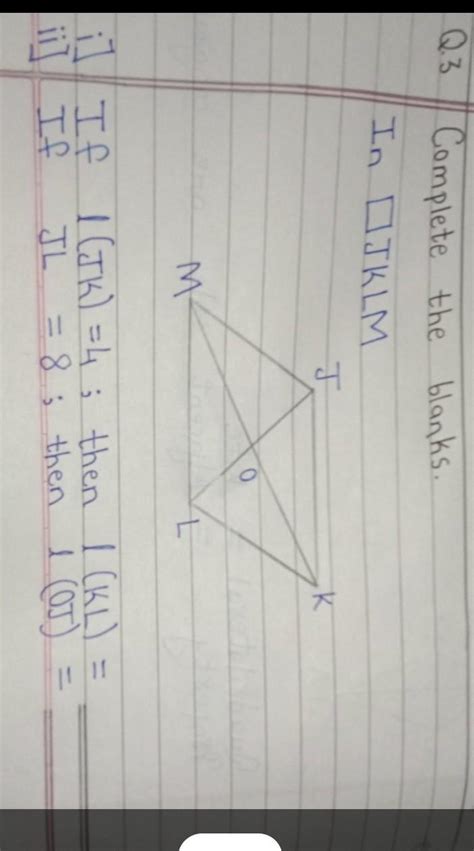 Q.3 Complete the blanks.
In □JKLM
J
K
O
M
L
i] If l(JK) = 4 ; then l(KL) =
ii] If JL = 8 ; then l(OJ) =